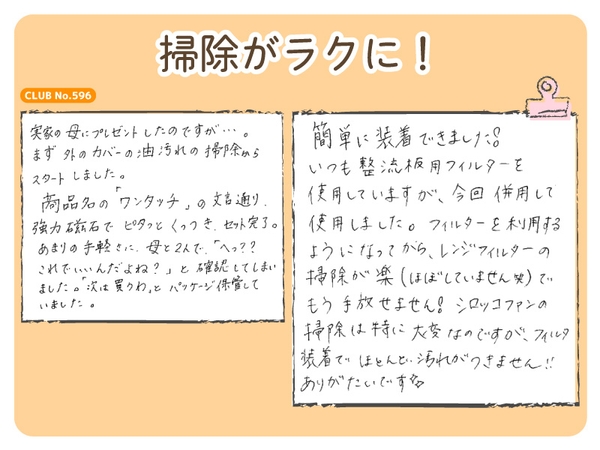 掃除がラクに！
CLUB No.596
実家の母にプレゼントしたのですが…。
まず外のカバーの油汚れの掃除から
スタートしました。
商品名の「ワンタッチ」の文言通り、
強力磁石でピタッとくっつき、セット完了。
あまりの手軽さに、母と2人で、「へっ??
これでいいんだよね？」と確認してしまい
ました。「次は買うわ」とパッケージ保管して
いました。
簡単に装着できました!
いつも整流板用フィルターを
使用していますが、今回併用して
使用しました。フィルターを利用する
ようになってから、レンジフィルターの
掃除が楽(ほぼしていません笑)で
もう手放せません! シロッコファンの
掃除は特に大変なのですが、フィルタ
装着でほとんど汚れがつきません!!
ありがたいです